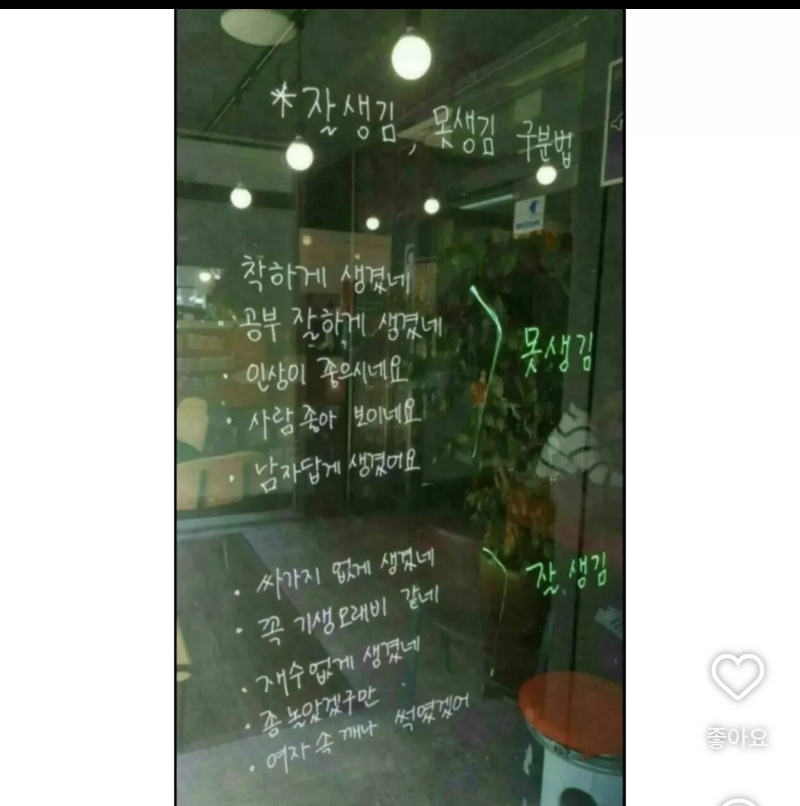 *잘생김, 못생김 구분법
· 착하게 생겼네
· 공부 잘하게 생겼네
· 인상이 좋으시네요
· 사람 좋아 보이네요
· 남자답게 생겼어요
못생김
· 싸가지 없게 생겼네
· 꼭 기생오래비 같네
· 재수없게 생겼네
· 좀 놀았겠구만
· 여자 속 깨나 썩였겠어
잘 생김
좋아요